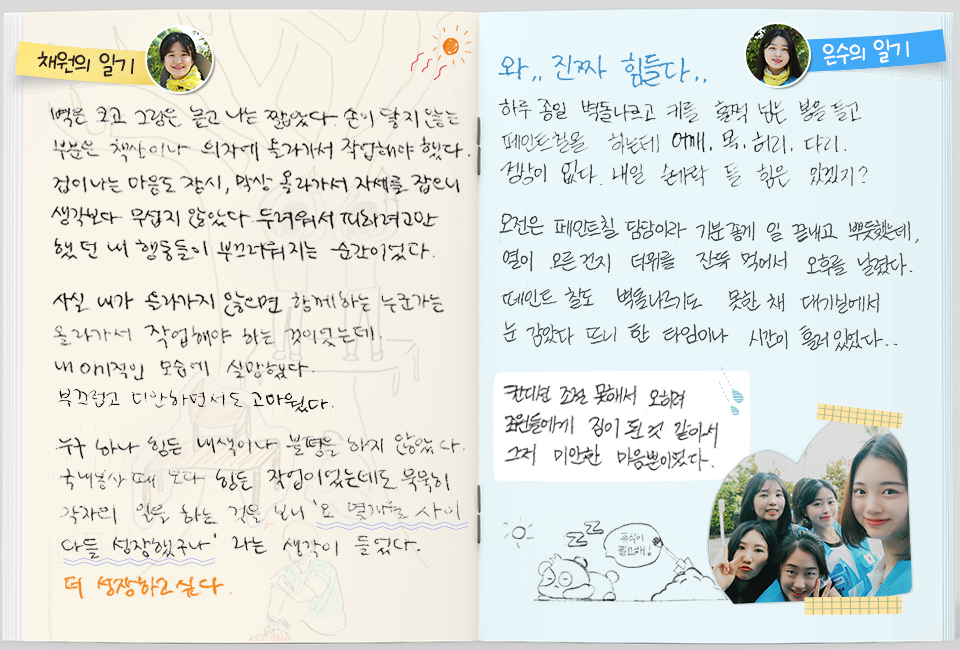 채원의 일기
벽은 크고 그림은 높고 나는 짧았다. 손이 닿지 않는
부분은 책상이나 의자에 올라가서 작업해야 했다.
겁이나는 마음도 잠시, 막상 올라가서 자세를 잡으니
생각보다 무섭지 않았다. 두려워서 피하려고만
했던 내 행동들이 부끄러워지는 순간이었다.
사실 내가 올라가지 않으면 함께하는 누군가는
올라가서 작업해야 하는 것이었는데.
내 이기적인 모습에 실망했다.
부끄럽고 미안하면서도 고마웠다.
누구 하나 힘든 내색이나 불평을 하지 않았다.
국내봉사 때 보다 힘든 작업이었는데도 묵묵히
각자의 일을 하는 것을 보니 '요 몇개월 사이
다들 성장했구나' 라는 생각이 들었다.
더 성장하고 싶다.
은수의 일기
와.. 진짜 힘들다..
하루 종일 벽돌나르고 키를 훌쩍 넘는 붓을 들고
페인트칠을 하는데 어깨, 목, 허리, 다리.
정상이 없다. 내일 손가락 들 힘은 있겠지?
오전은 페인트칠 담당이라 기분좋게 일 끝내고 뿌듯했는데,
열이 오른건지 더위를 잔뜩 먹어서 오후를 날렸다.
페인트 칠도 벽돌나르기도 못한 채 대기실에서
눈 감았다 뜨니 한 타임이나 시간이 흘러있었다..
컨디션 조절 못해서 오히려
조원들에게 짐이 된 것 같아서
그저 미안한 마음뿐이었다.